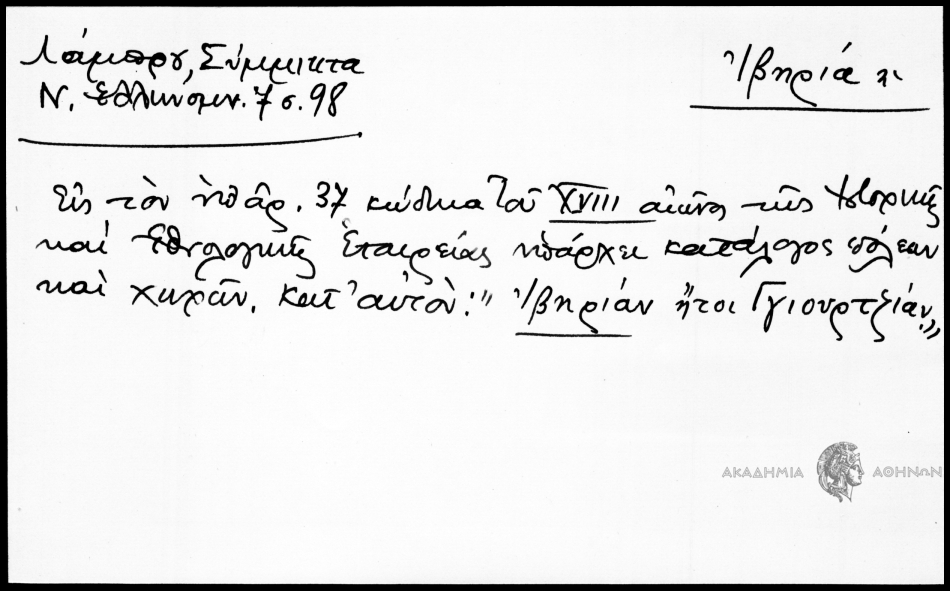 Λάμπρου, Σύμμικτα
Ν. Ἑλληνομν. 7 σ. 98
Ἰβηρία ἡ
Εἰς τὸν ὑπ' ἀρ. 37 κώδικα τοῦ XVIII αἰῶνος τῆς Ἱστορικῆς
καὶ Ἐθνολογικῆς Ἑταιρείας ὑπάρχει κατάλογος πόλεων
καὶ χωρῶν. κατ' αὐτὸν: "Ἰβηρίαν ἤτοι Γγιουρτζιάν."
ΑΚΑΔΗΜΙΑ ΑΘΗΝΩΝ